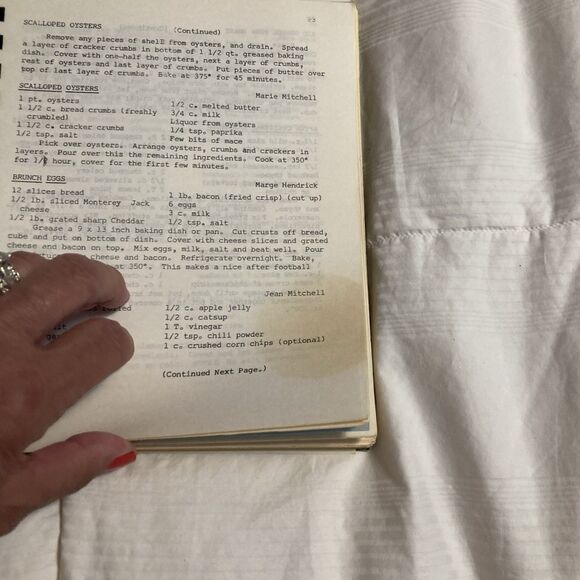 23
SCALLOPED OYSTERS
(Continued)
Remove any pieces of shell from oysters, and drain. Spread
a layer of cracker crumbs in bottom of 1 1/2 qt. greased baking
dish. Cover with one-half the oysters, next a layer of crumbs,
rest of oysters and last layer of crumbs. Put pieces of butter over
top of last layer of crumbs. Bake at 375° for 45 minutes.
SCALLOPED OYSTERS Marie Mitchell
1 pt. oysters 1/2 c. melted butter
1 1/2 c. bread crumbs (freshly 3/4 c. milk
crumbled) Liquor from oysters
1 1/2 c. cracker crumbs 1/4 tsp. paprika
1/2 tsp. salt Few bits of mace
Pick over oysters. Arrange oysters, crumbs and crackers in
layers. Pour over this the remaining ingredients. Cook at 350°
for 1/ hour, cover for the first few minutes.
BRUNCH EGGS Marge Hendrick
12 slices bread 1 lb. bacon (fried crisp) (cut up)
1/2 lb. sliced Monterey Jack 6 eggs
cheese 3 c. milk
1/2 lb. grated sharp Cheddar 1/2 tsp. salt
Grease a 9 x 13 inch baking dish or pan. Cut crusts off bread,
cube and put on bottom of dish. Cover with cheese slices and grated
cheese and bacon on top. Mix eggs, milk, salt and beat well. Pour
cheese and bacon. Refrigerate overnight. Bake,
at 350°. This makes a nice after football
Jean Mitchell
1/2 c. apple jelly
1/2 c. catsup
1 T. vinegar
1/2 tsp. chili powder
1 c. crushed corn chips (optional)
(Continued Next Page.)